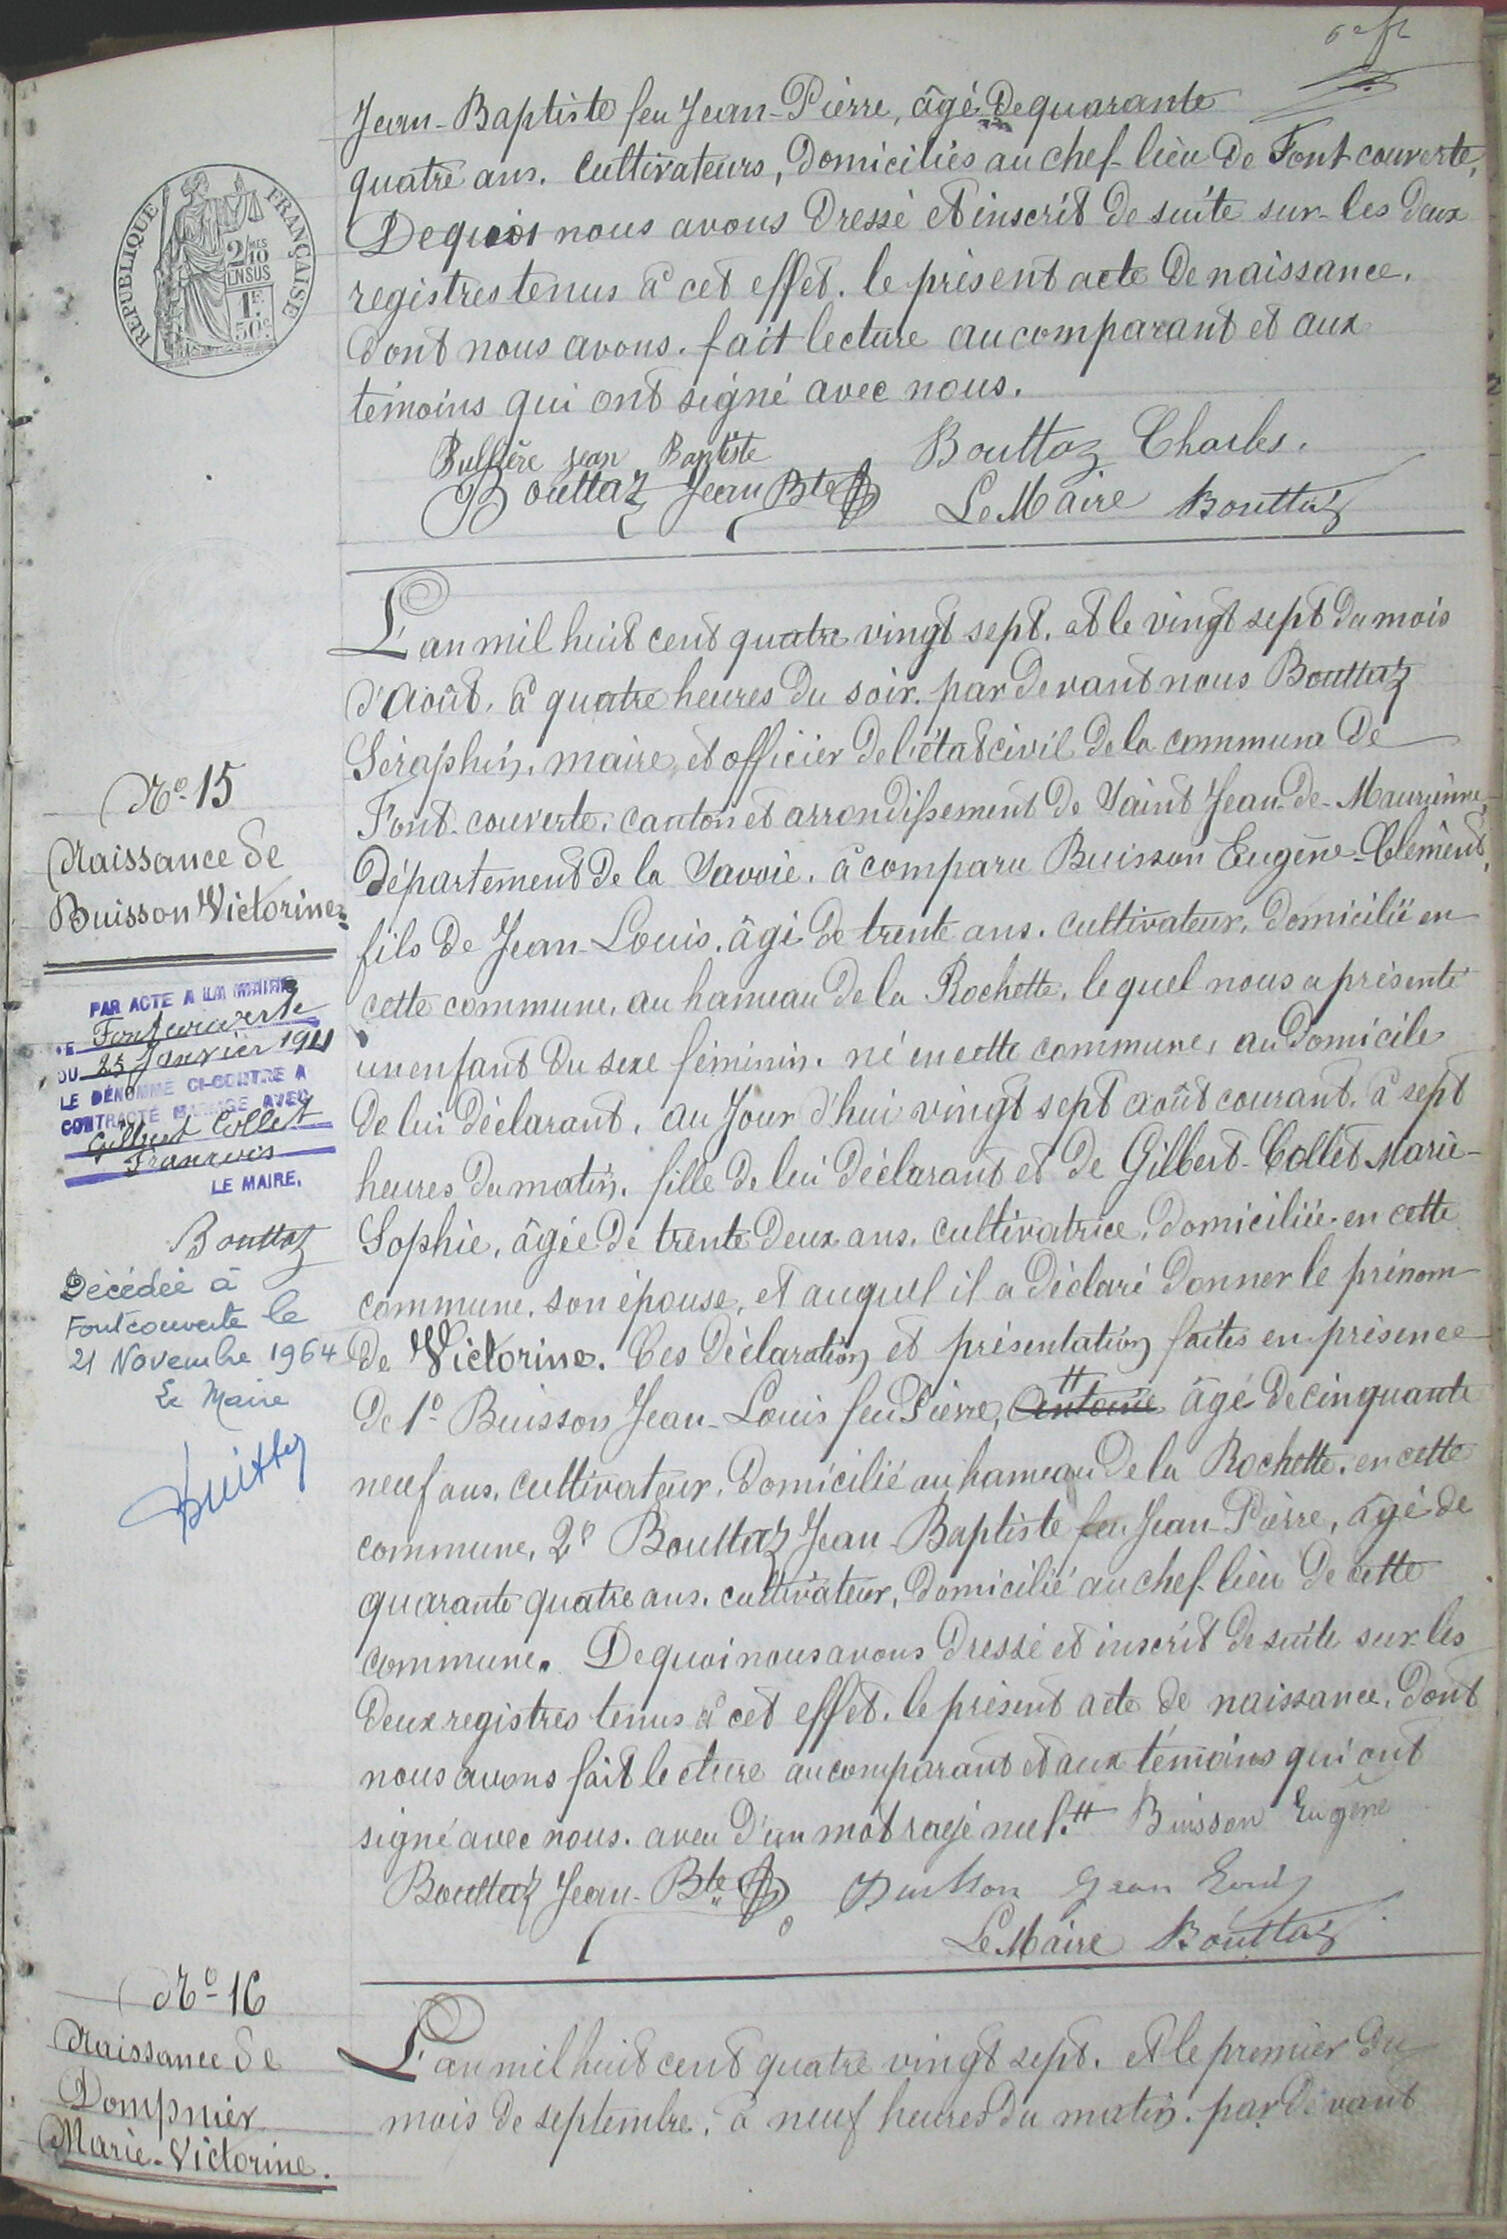 6e ft
Jean-Baptiste feu Jean-Pierre, âgé de quarante
quatre ans. Cultivateurs, domiciliés au chef-lieu de Fontcouverte,
De quoi nous avons dressé et inscrit de suite sur les deux
registres tenus à cet effet. le présent acte de naissance.
dont nous avons fait lecture au comparant et aux
témoins qui ont signé avec nous.
RÉPUBLIQUE FRANÇAISE
2/10 MES
EN SUS
1F.
50c
Jean Baptiste Bouttaz Charles.
Bouttaz Jean Bte Le Maire Bouttaz
L'an mil huit cent quatre vingt sept. et le vingt sept du mois
d'Août, à quatre heures du soir. par devant nous Bouttaz
Séraphin, maire, et officier de l'état civil de la commune de
Font-couverte, canton et arrondissement de Saint Jean-de-Maurienne,
département de la Savoie. à comparu Buisson Eugène-Clément,
fils de Jean-Louis. âgé de trente ans. cultivateur, domicilié en
cette commune, au hameau de la Rochette, lequel nous a présenté
un enfant du sexe féminin. né en cette commune, au domicile
de lui déclarant, au Jour d'hui vingt sept août courant, à sept
heures du matin. fille de lui déclarant et de Gilbert-Collet Marie-
Sophie, âgée de trente deux ans. cultivatrice, domiciliée en cette
commune, son épouse, et auquel il a déclaré donner le prénom
de Victorine. Ces déclaration et présentation faites en présence
de 1º Buisson Jean-Louis feu Pierre, Antoine # âgé de cinquante
neuf ans, cultivateur, domicilié au hameau de la Rochette, en cette
commune, 2º Bouttaz Jean-Baptiste feu Jean-Pierre, âgé de
quarante quatre ans. cultivateur, domicilié au chef-lieu de cette
commune. De quoi nous avons dressé et inscrit de suite sur les
deux registres tenus à cet effet. le présent acte de naissance, dont
nous avons fait lecture au comparant et aux témoins qui ont
signé avec nous. aveu d'un mot rayé nul.# Buisson Eugène
Bouttaz Jean-Bte Buisson Jean Louis
Le Maire Bouttaz
Nº 15
Naissance de
Buisson Victorine
PAR ACTE A LA MAIRIE
DE Fontcouverte
DU 25 Janvier 1911
LE DÉNOMMÉ CI-CONTRE A
CONTRACTÉ MARIAGE AVEC
Gilbert Collet
François
LE MAIRE,
Bouttaz
Décédée à
Fontcouverte le
21 Novembre 1964
Le Maire
Nº 16
Naissance de
Dompnier
Marie-Victorine.
L'an mil huit cent quatre vingt sept. et le premier du
mois de septembre, à neuf heures du matin. par devant